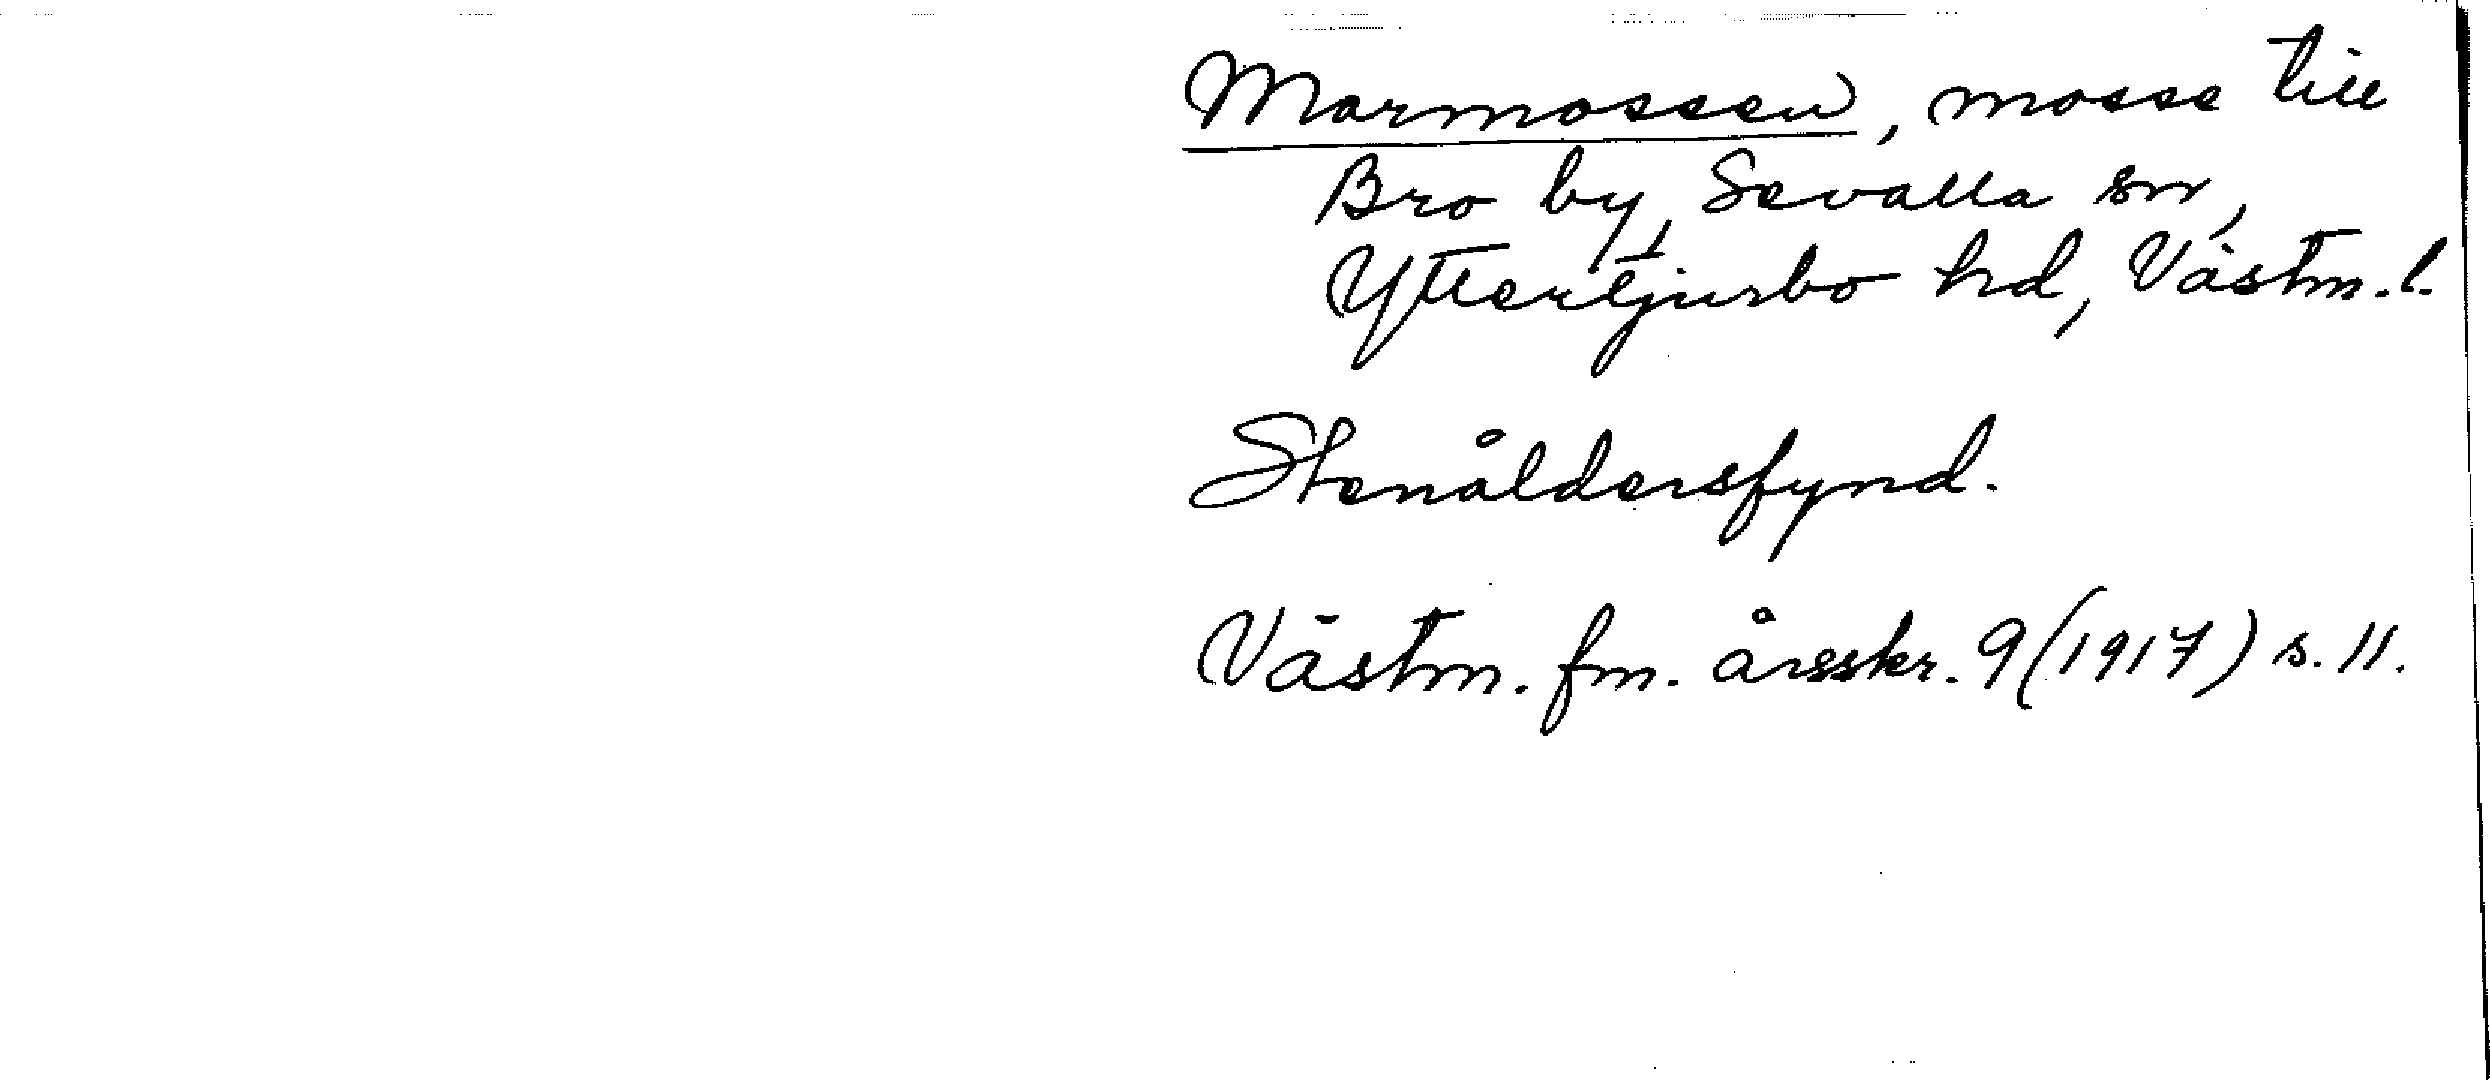 Marmossen, mosse till
Bro by, Sevalla sn,
Yttertjurbo hd, Västm. l.
Stenåldersfynd.
Västm. fm. årsskr. 9 (1917) s. 11.